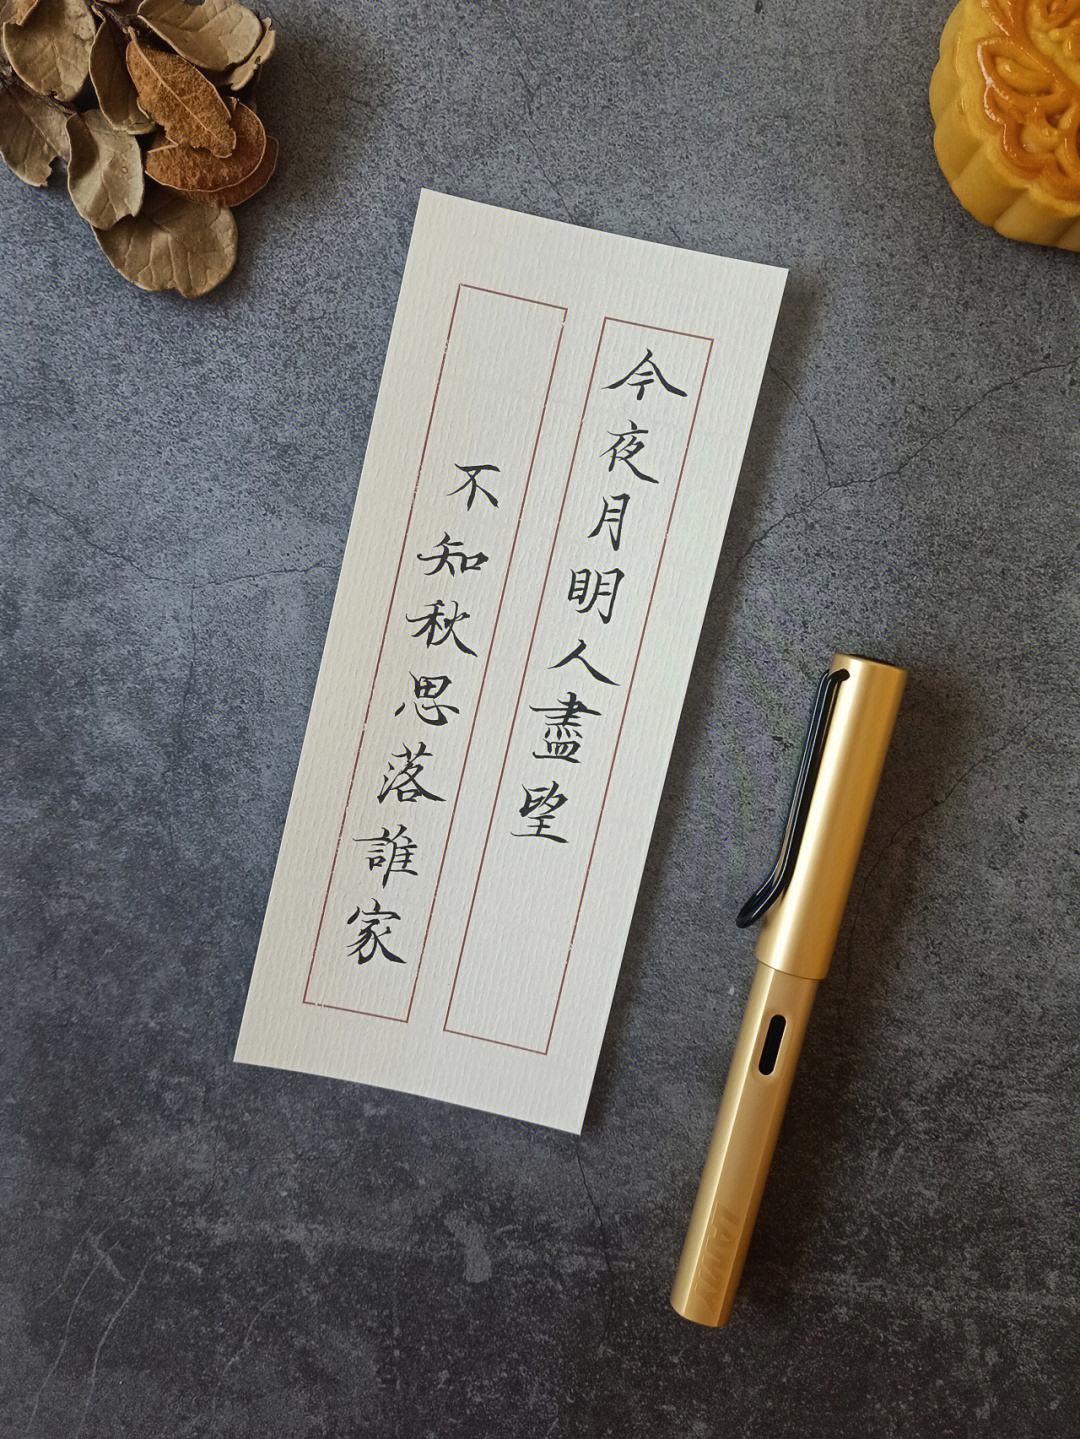 今夜月明人盡望
不知秋思落誰家
LAMY